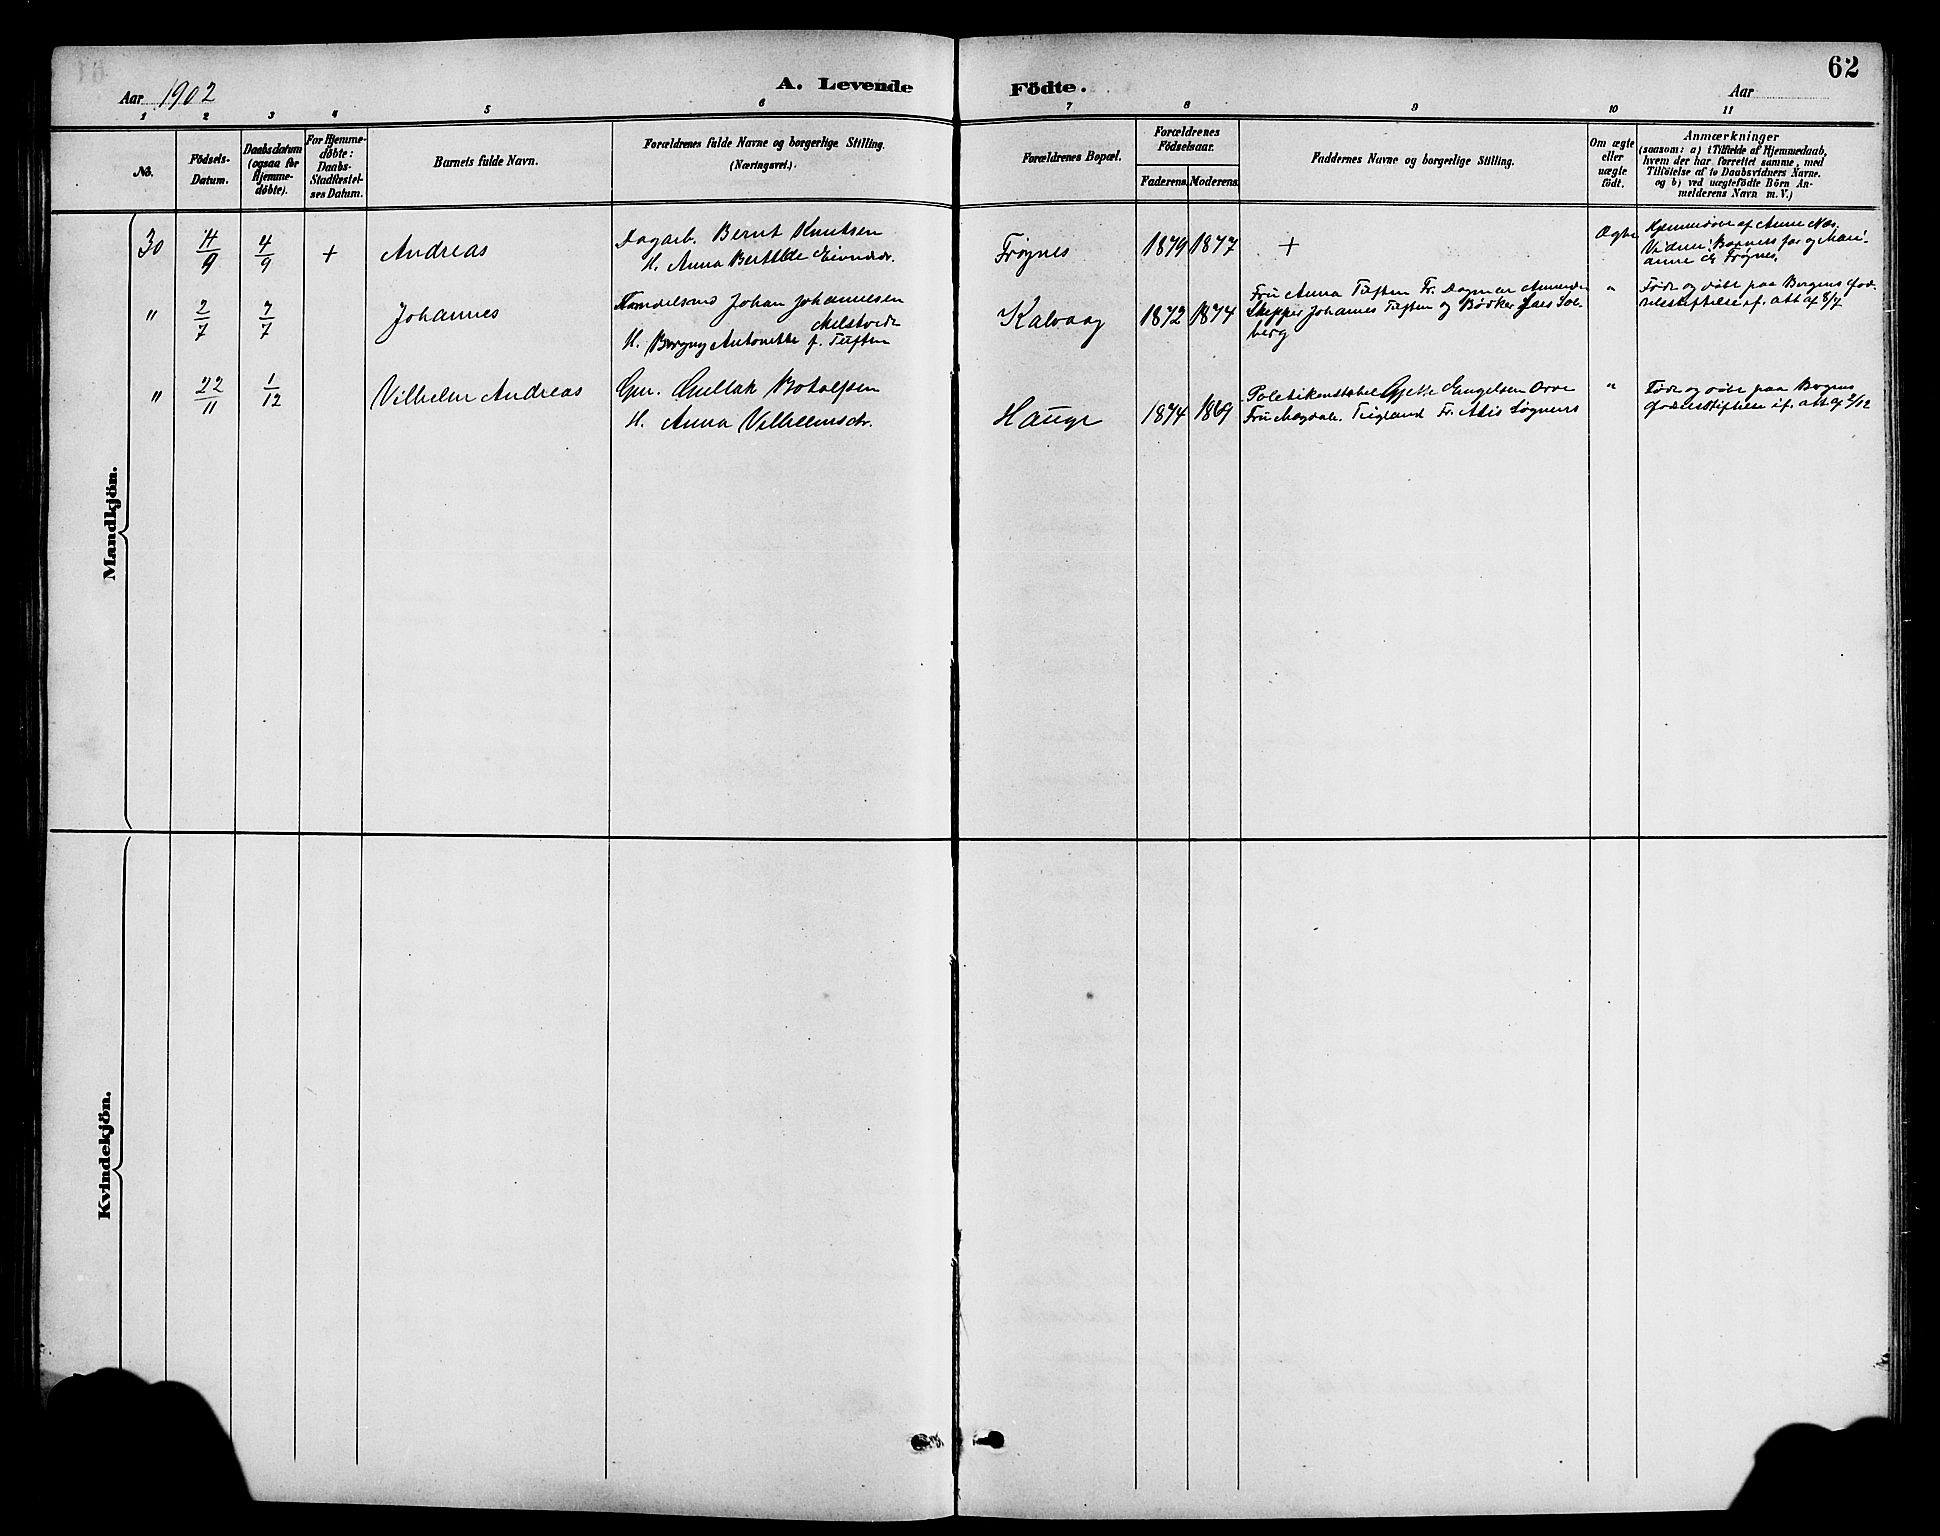 62
Aar 1902
A. Levende
Födte.
Aar
1 2 3 4 5 6 7 8 9 10 11
No.
Födsels-
Datum.
Daabsdatum
(ogsaa for
Hjemme-
döbte).
For Hjemme-
döbte:
Daabs-
Stadfæstel-
ses Datum.
Barnets fulde Navn.
Forældrenes fulde Navne og borgerlige Stilling.
(Næringsvei.)
Forældrenes Bopæl.
Forældrenes
Födselsaar.
Faderens. Moderens.
Faddernes Navne og borgerlige Stilling.
Om ægte
eller
uægte
födt.
Anmærkninger
(saasom: a) i Tilfælde af Hjemmedaab,
hvem der har forrettet samme, med
Tilföielse af to Daabsvidners Navne.
og b) ved uægtefödte Börn An-
melderens Navn m. V.)
Mandkjön.
30 4/9 + Andreas
Dagarb. Bernt Knutsen
H. Anna
Frøynes 1879 1877 + Ægte
Hjemmedøbt af Anne
Vidner: Barnets far og Mari-
anne Frøynes.
" 2/7 7/7 Johannes
Handelsmd Johan Johannesen
H. Borgny Antonette f. Tuften
Kalvaag 1872 1874
Fru Anna Tuften Fr. Dagmar
Skipper Johannes Tuften og Bødker Lars Sol-
berg
"
Født og døbt paa Bergens Fød-
selsstiftelse if. att af 8/7
" 22/11 1/12 Vilhelm Andreas
Gm. Gullak Botolfsen
H. Anna Vilhelmsdtr.
Hauge 1874 1869
Politikonstabel Engelsen
Fru Magdale. Tegland Fr.
"
Født og døbt paa Bergens
Fødselsstiftelse if. att af 2/12
Kvindekjön.